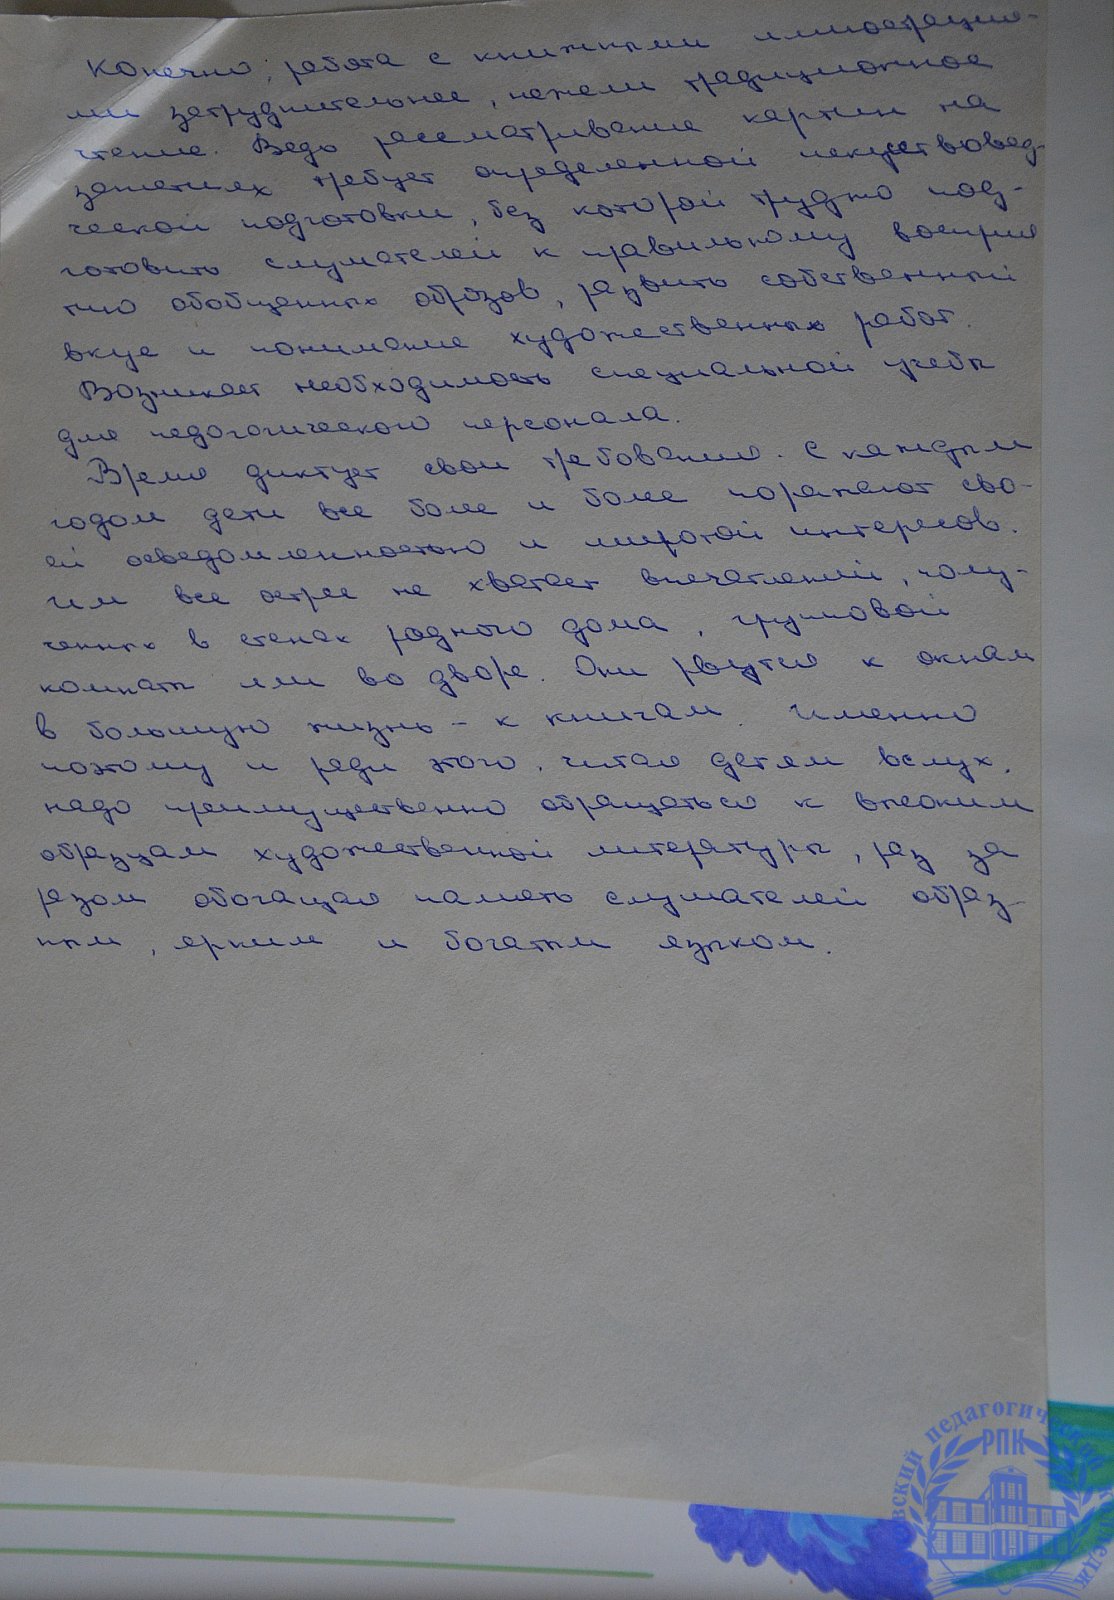 Конечно, работа с книжными иллюстрация-
ми затруднительнее, нежели традиционное
чтение. Ведь рассматривание картин на
занятиях требует определенной искусствовед-
ческой подготовки, без которой трудно под-
готовить слушателей к правильному восприя
тию обобщенных образов, развить собственный
вкус и понимание художественных работ.
Возникает необходимость специальной учебы
для педагогического персонала.
Время диктует свои требования. С каждым
годом дети все более и более поражают сво-
ей осведомленностью и широтой интересов.
Им все острее не хватает впечатлений, полу-
ченных в стенах родного дома, групповой
комнаты или во дворе. Они рвутся к окнам
в большую жизнь – к книгам. Именно
поэтому и ради этого, читая детям вслух,
надо преимущественно обращаться к высоким
образцам художественной литературы, раз за
разом обогащая память слушателей образ-
ным, ярким и богатым языком.
вский педагогический колледж
РПК